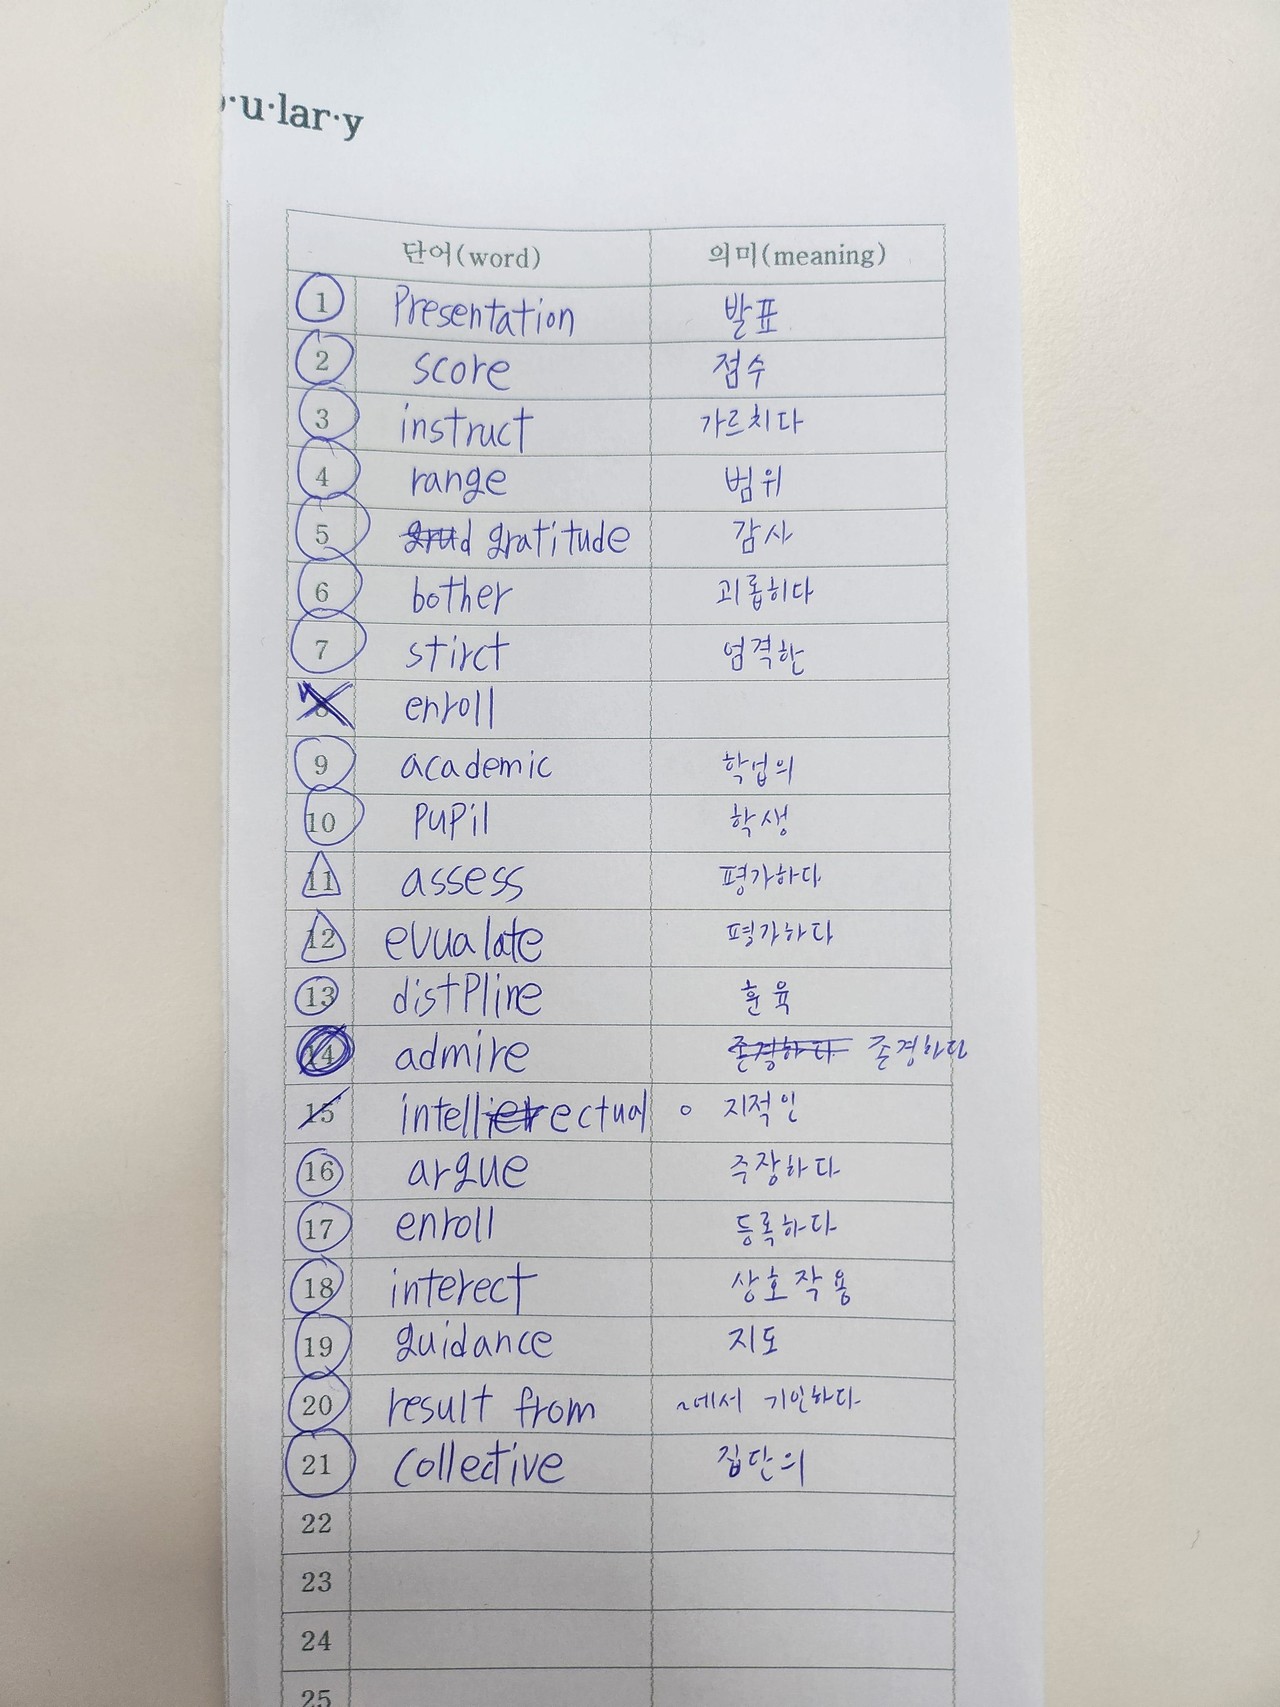 u·lar·y
단어(word) 의미(meaning)
1 Presentation 발표
2 score 점수
3 instruct 가르치다
4 range 범위
5 gratitude 감사
6 bother 괴롭히다
7 stirct 엄격한
8 enroll
9 academic 학업의
10 pupil 학생
11 assess 평가하다
12 evualate 평가하다
13 distpline 훈육
14 admire 존경하다 존경하다
15 intellectual 지적인
16 argue 주장하다
17 enroll 등록하다
18 interect 상호작용
19 guidance 지도
20 result from ~에서 기인하다
21 collective 집단의
22
23
24
25